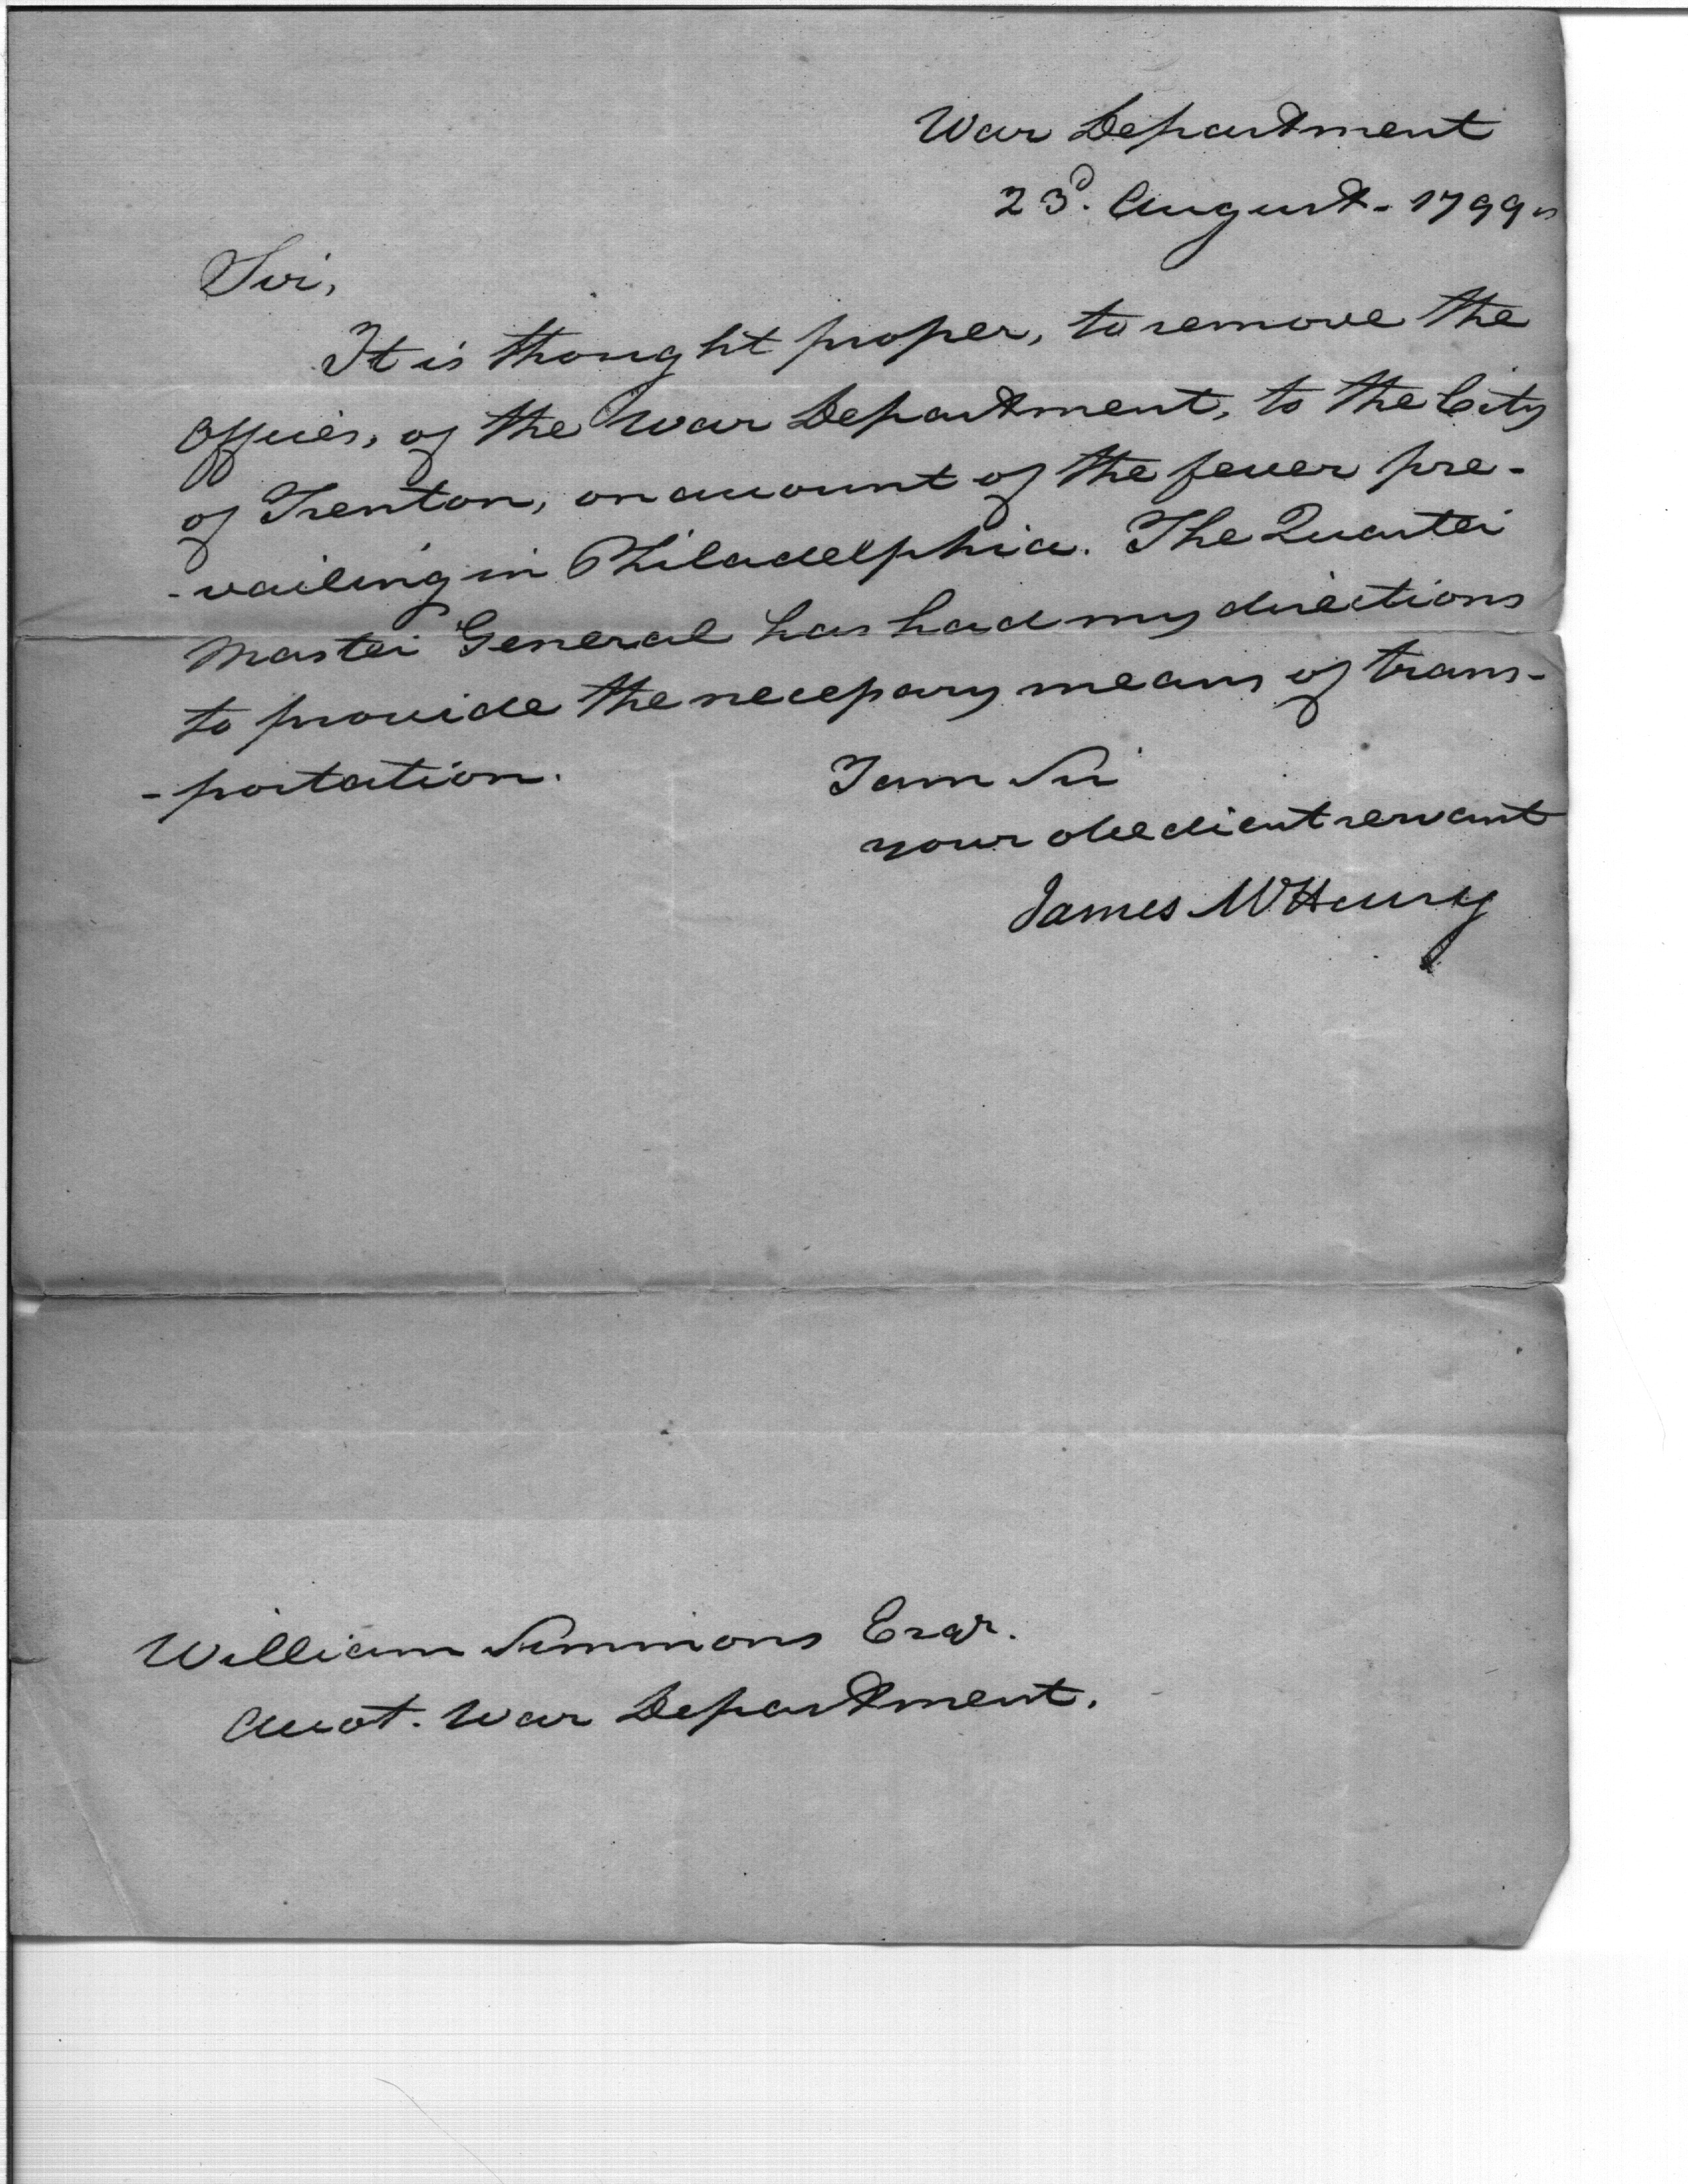 War Department
23d. August - 1799 -
Sir,
It is thought proper, to remove the
Offices, of the War Department, to the City
of Trenton, on account of the fever pre-
-vailing in Philadelphia. The Quarter
Master General has had my directions
to provide the necessary means of trans-
-portation.
I am Sir
your obedient servant
James McHenry
William Simmons Esqr.
Accot. War Department.